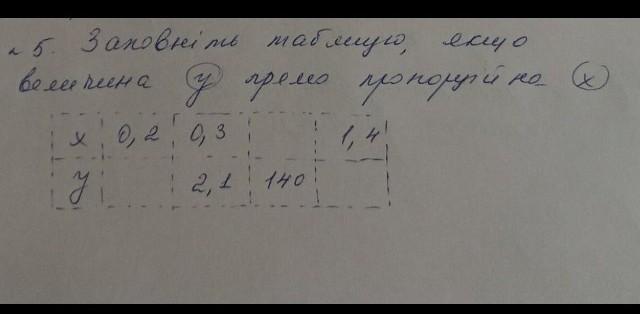 №5. Заповніть таблицю, якщо
величина y прямо пропорційна x
x 0,2 0,3 1,4
y 2,1 140